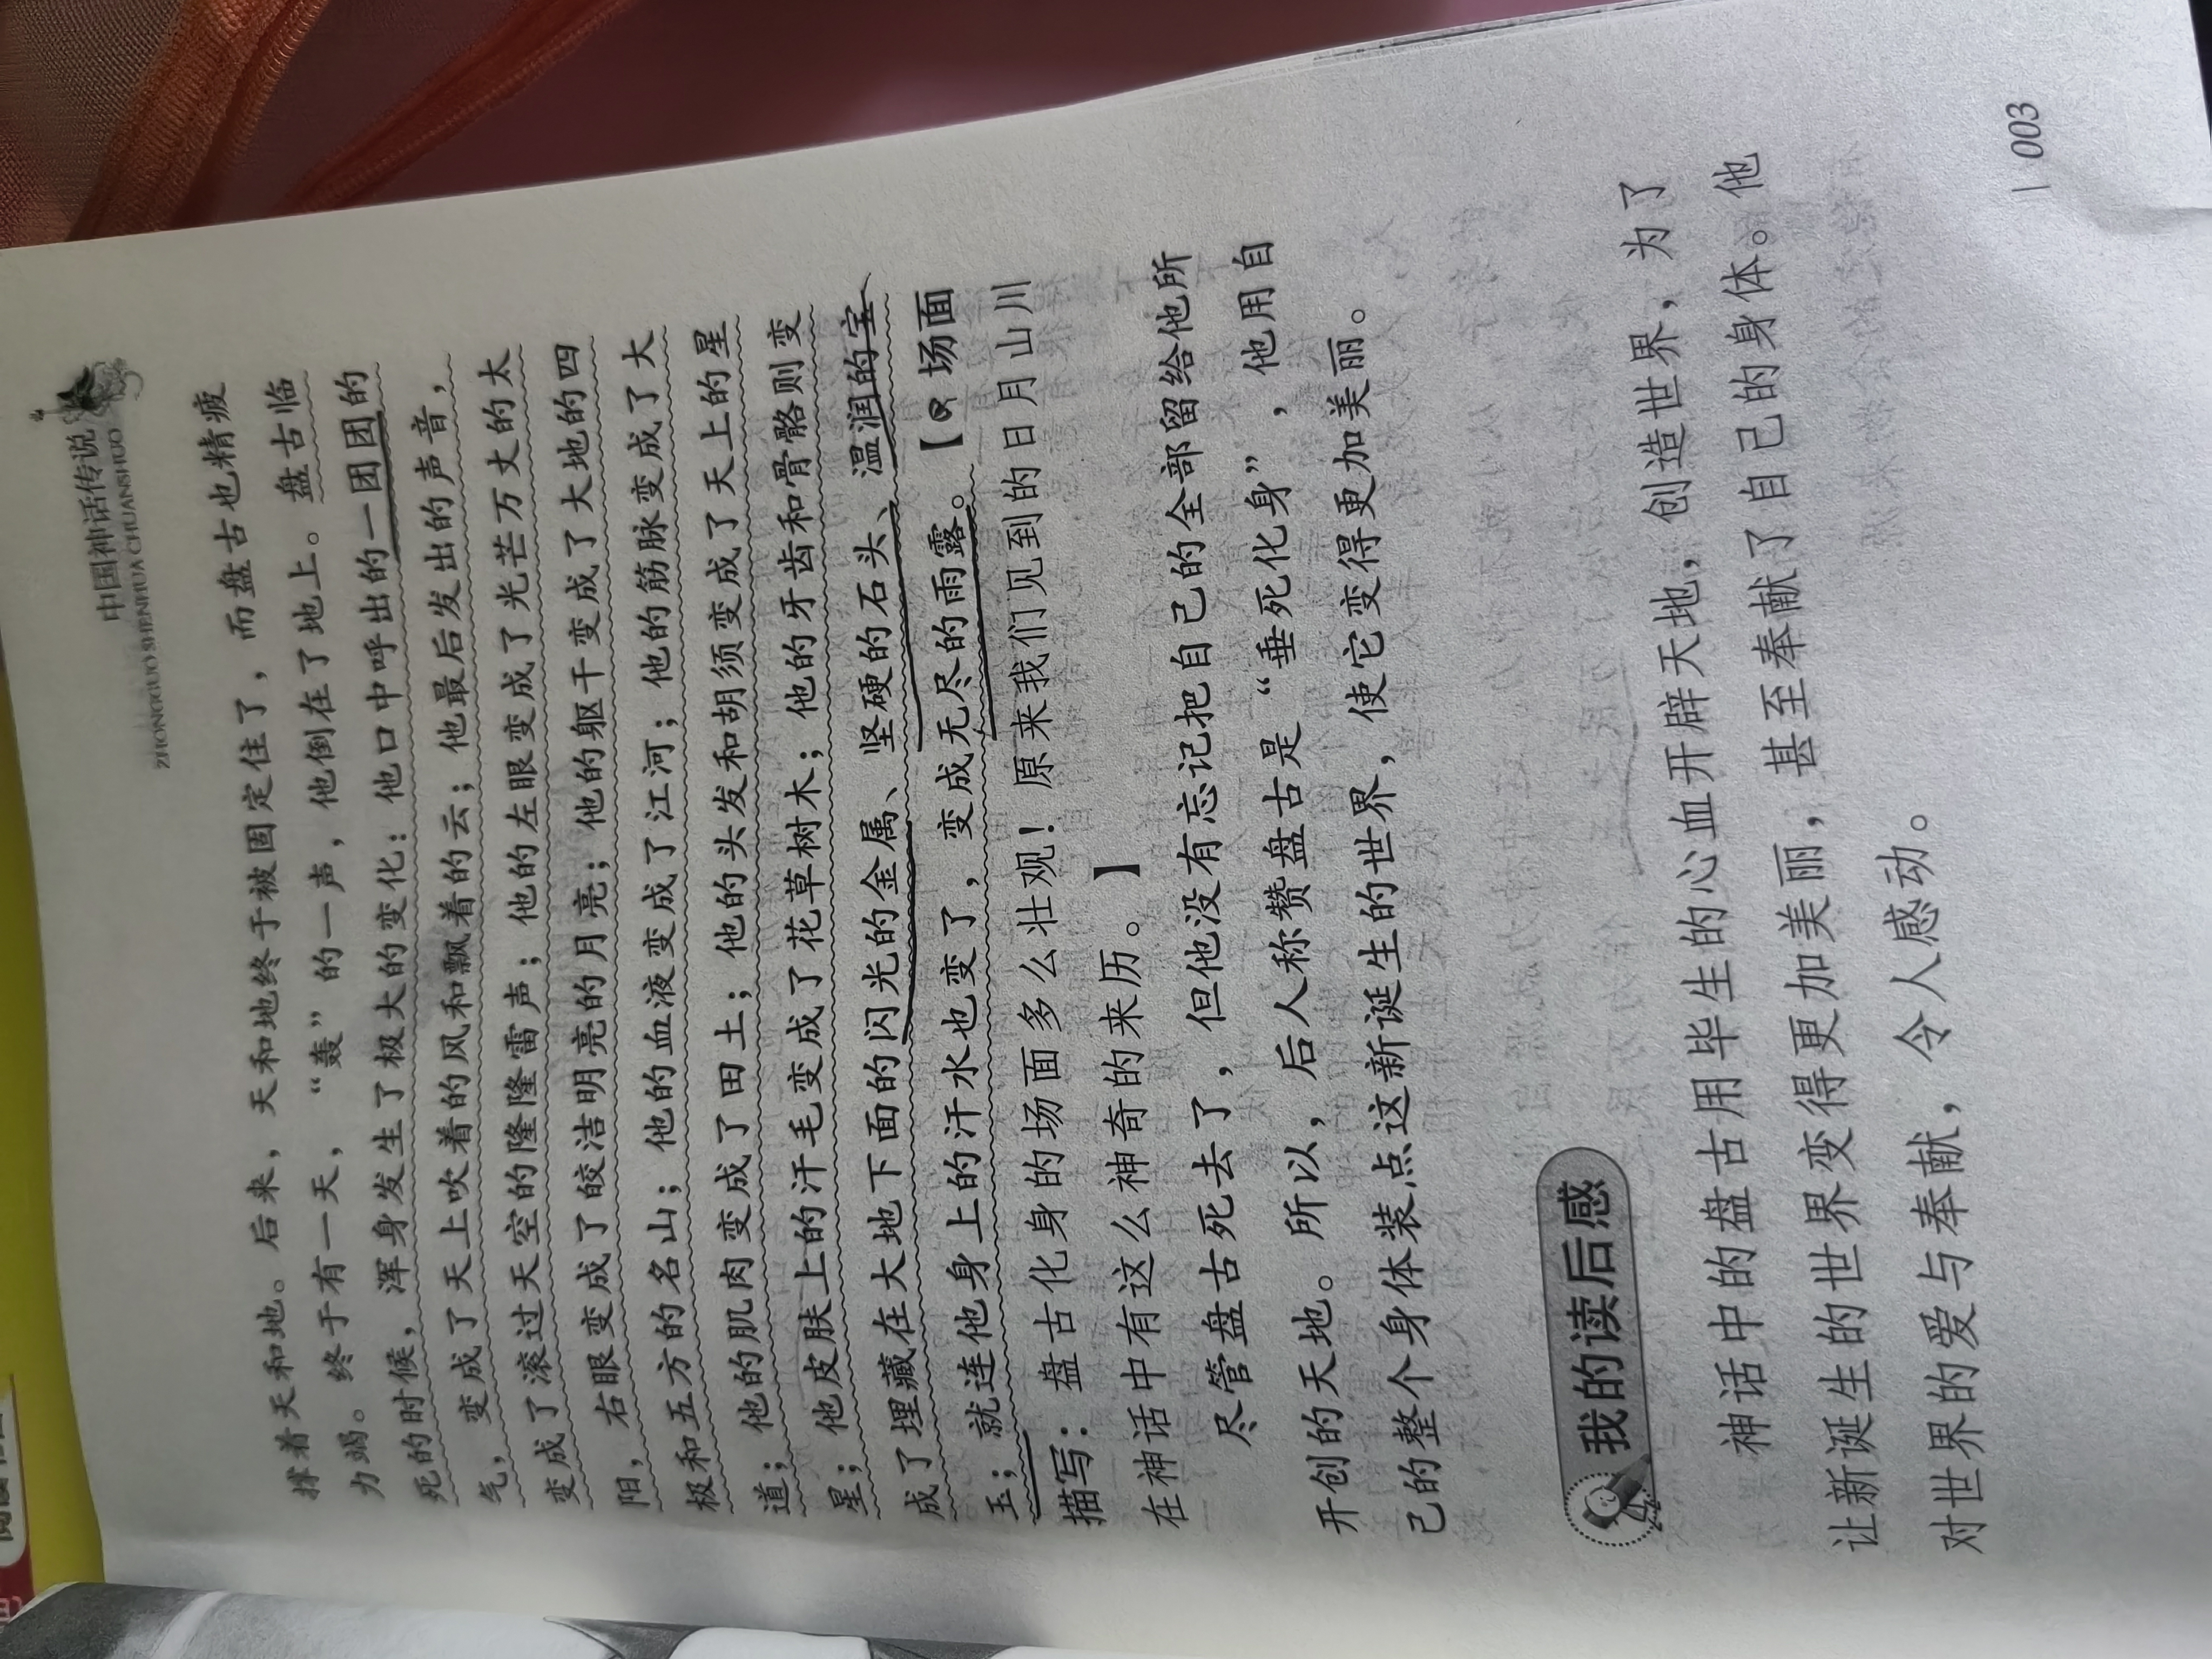 中国神话传说
ZHONGGUO SHENHUA CHUANSHUO
撑着天和地。后来，天和地终于被固定住了，而盘古也精疲
力竭。终于有一天，“轰”的一声，他倒在了地上。盘古临
死的时候，浑身发生了极大的变化：他口中呼出的一团团的
气，变成了天上吹着的风和飘着的云；他最后发出的声音，
变成了滚过天空的隆隆雷声；他的左眼变成了光芒万丈的太
阳，右眼变成了皎洁明亮的月亮；他的躯干变成了大地的四
极和五方的名山；他的血液变成了江河；他的筋脉变成了大
道；他的肌肉变成了田土；他的头发和胡须变成了天上的星
星；他皮肤上的汗毛变成了花草树木；他的牙齿和骨骼则变
成了埋藏在大地下面的闪光的金属、坚硬的石头、温润的宝
玉；就连他身上的汗水也变了，变成无尽的雨露。【场面
描写：盘古化身的场面多么壮观！原来我们见到的日月山川
在神话中有这么神奇的来历。】
尽管盘古死去了，但他没有忘记把自己的全部留给他所
开创的天地。所以，后人称赞盘古是“垂死化身”，他用自
己的整个身体装点这新诞生的世界，使它变得更加美丽。
我的读后感
神话中的盘古用毕生的心血开辟天地，创造世界，为了
让新诞生的世界变得更加美丽，甚至奉献了自己的身体。他
对世界的爱与奉献，令人感动。
003